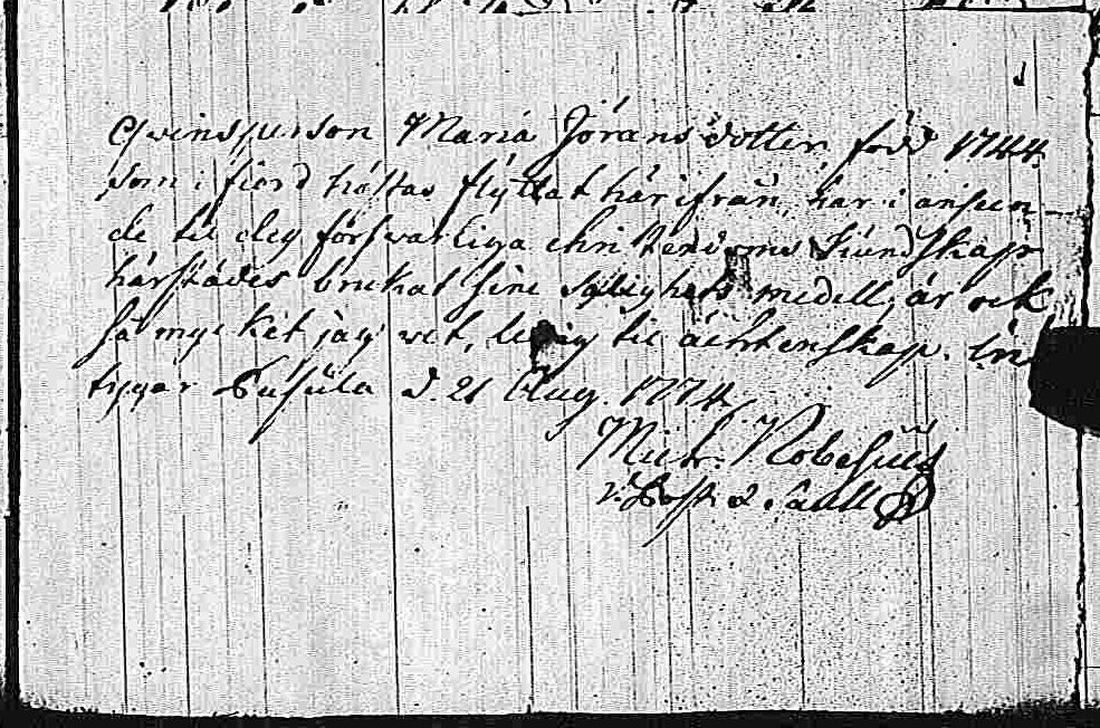 Qvinsperson Maria Jöransdotter, född 1744.
som i fiord höstas flyttat härifrån, har i anseen-
de til deg försvarliga christendoms kundskap
härstädes brukat sine salighets medell, är ock
så mycket jag vet, ledig til ächtenskap. in
tygar Pusula d. 21 Aug. 1774.
Mich. Robelius
v. Past. & Sacell